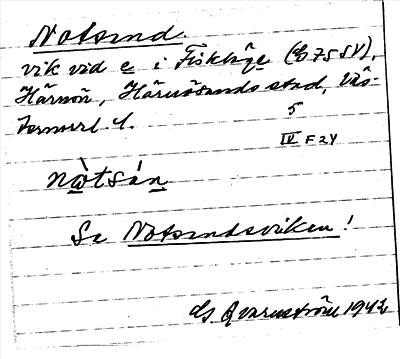 Notsand
vik vid e i Fiskläge (Eb 75 SV),
Härnön, Härnösands stad, Väs-
ternorrl. l.
5
IV F 24
nòtsán
Se Notsandsviken!
Qvarnström 1942